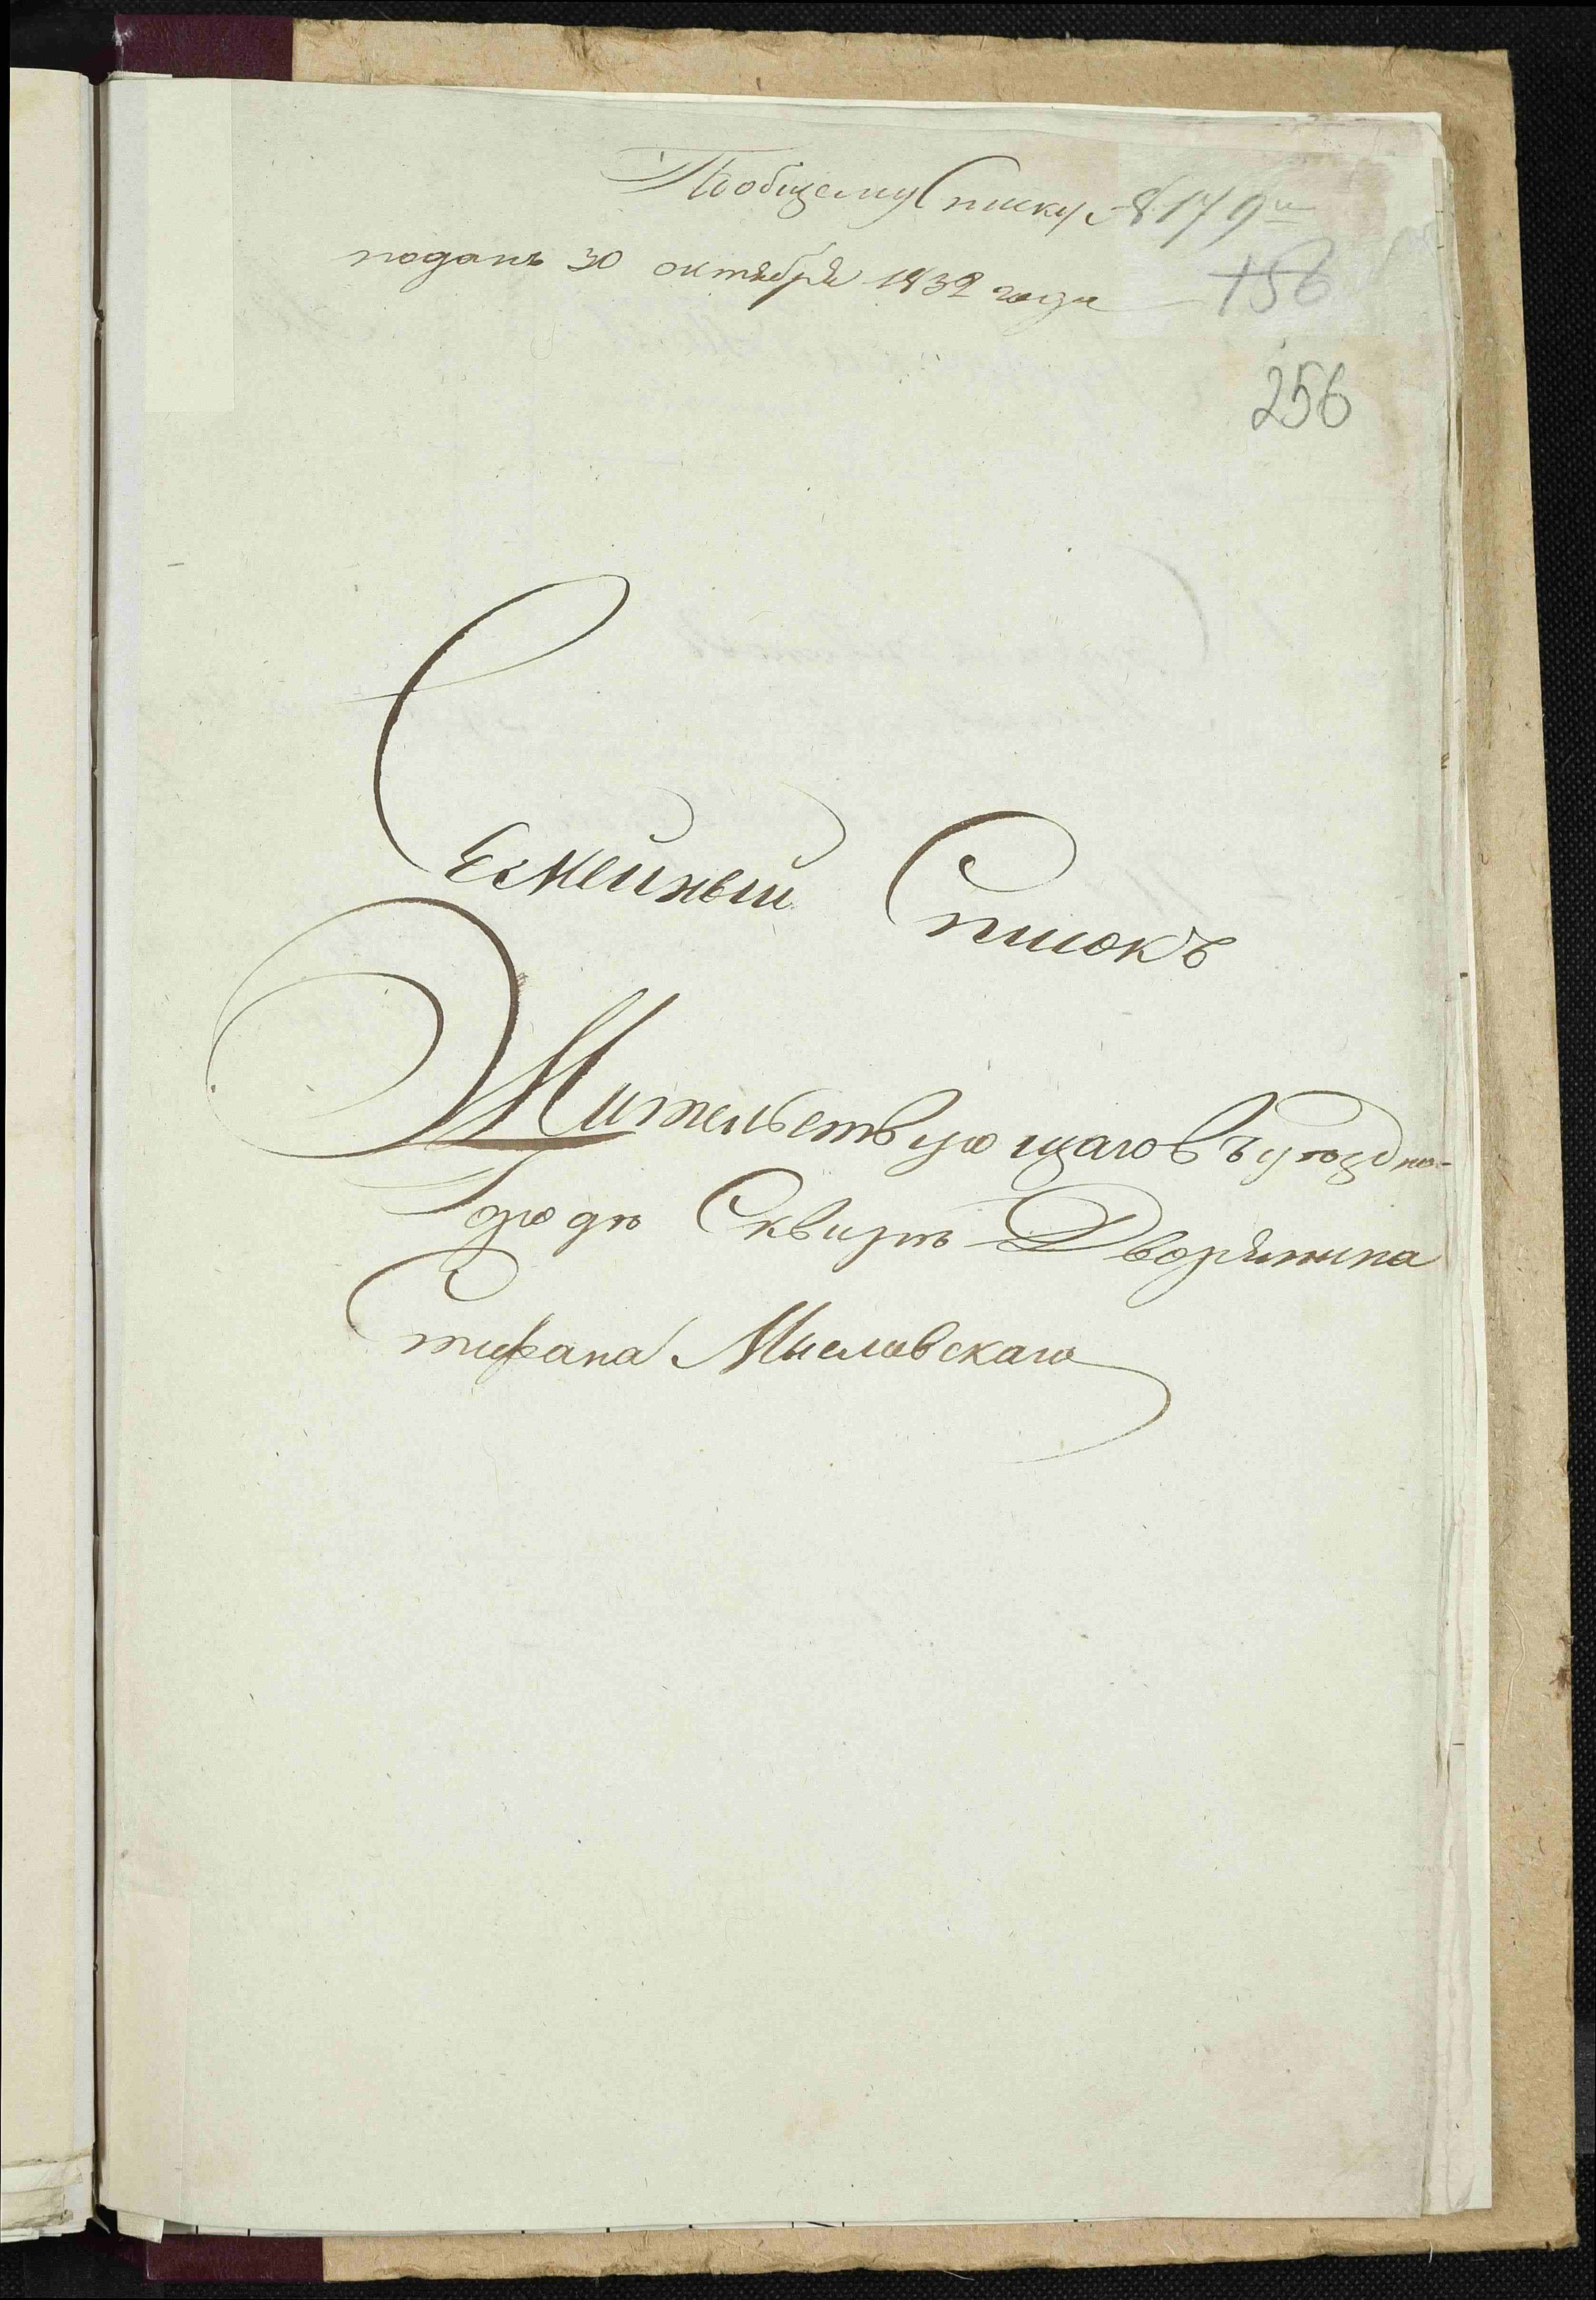 Пообщему Списку № 179й
поданъ 30 октября 1832 года
156
256
Семейный Списокъ
Жительствующаго въ уѣздно-
Городѣ Сквирѣ Дворянина
Стефана Мысловскаго